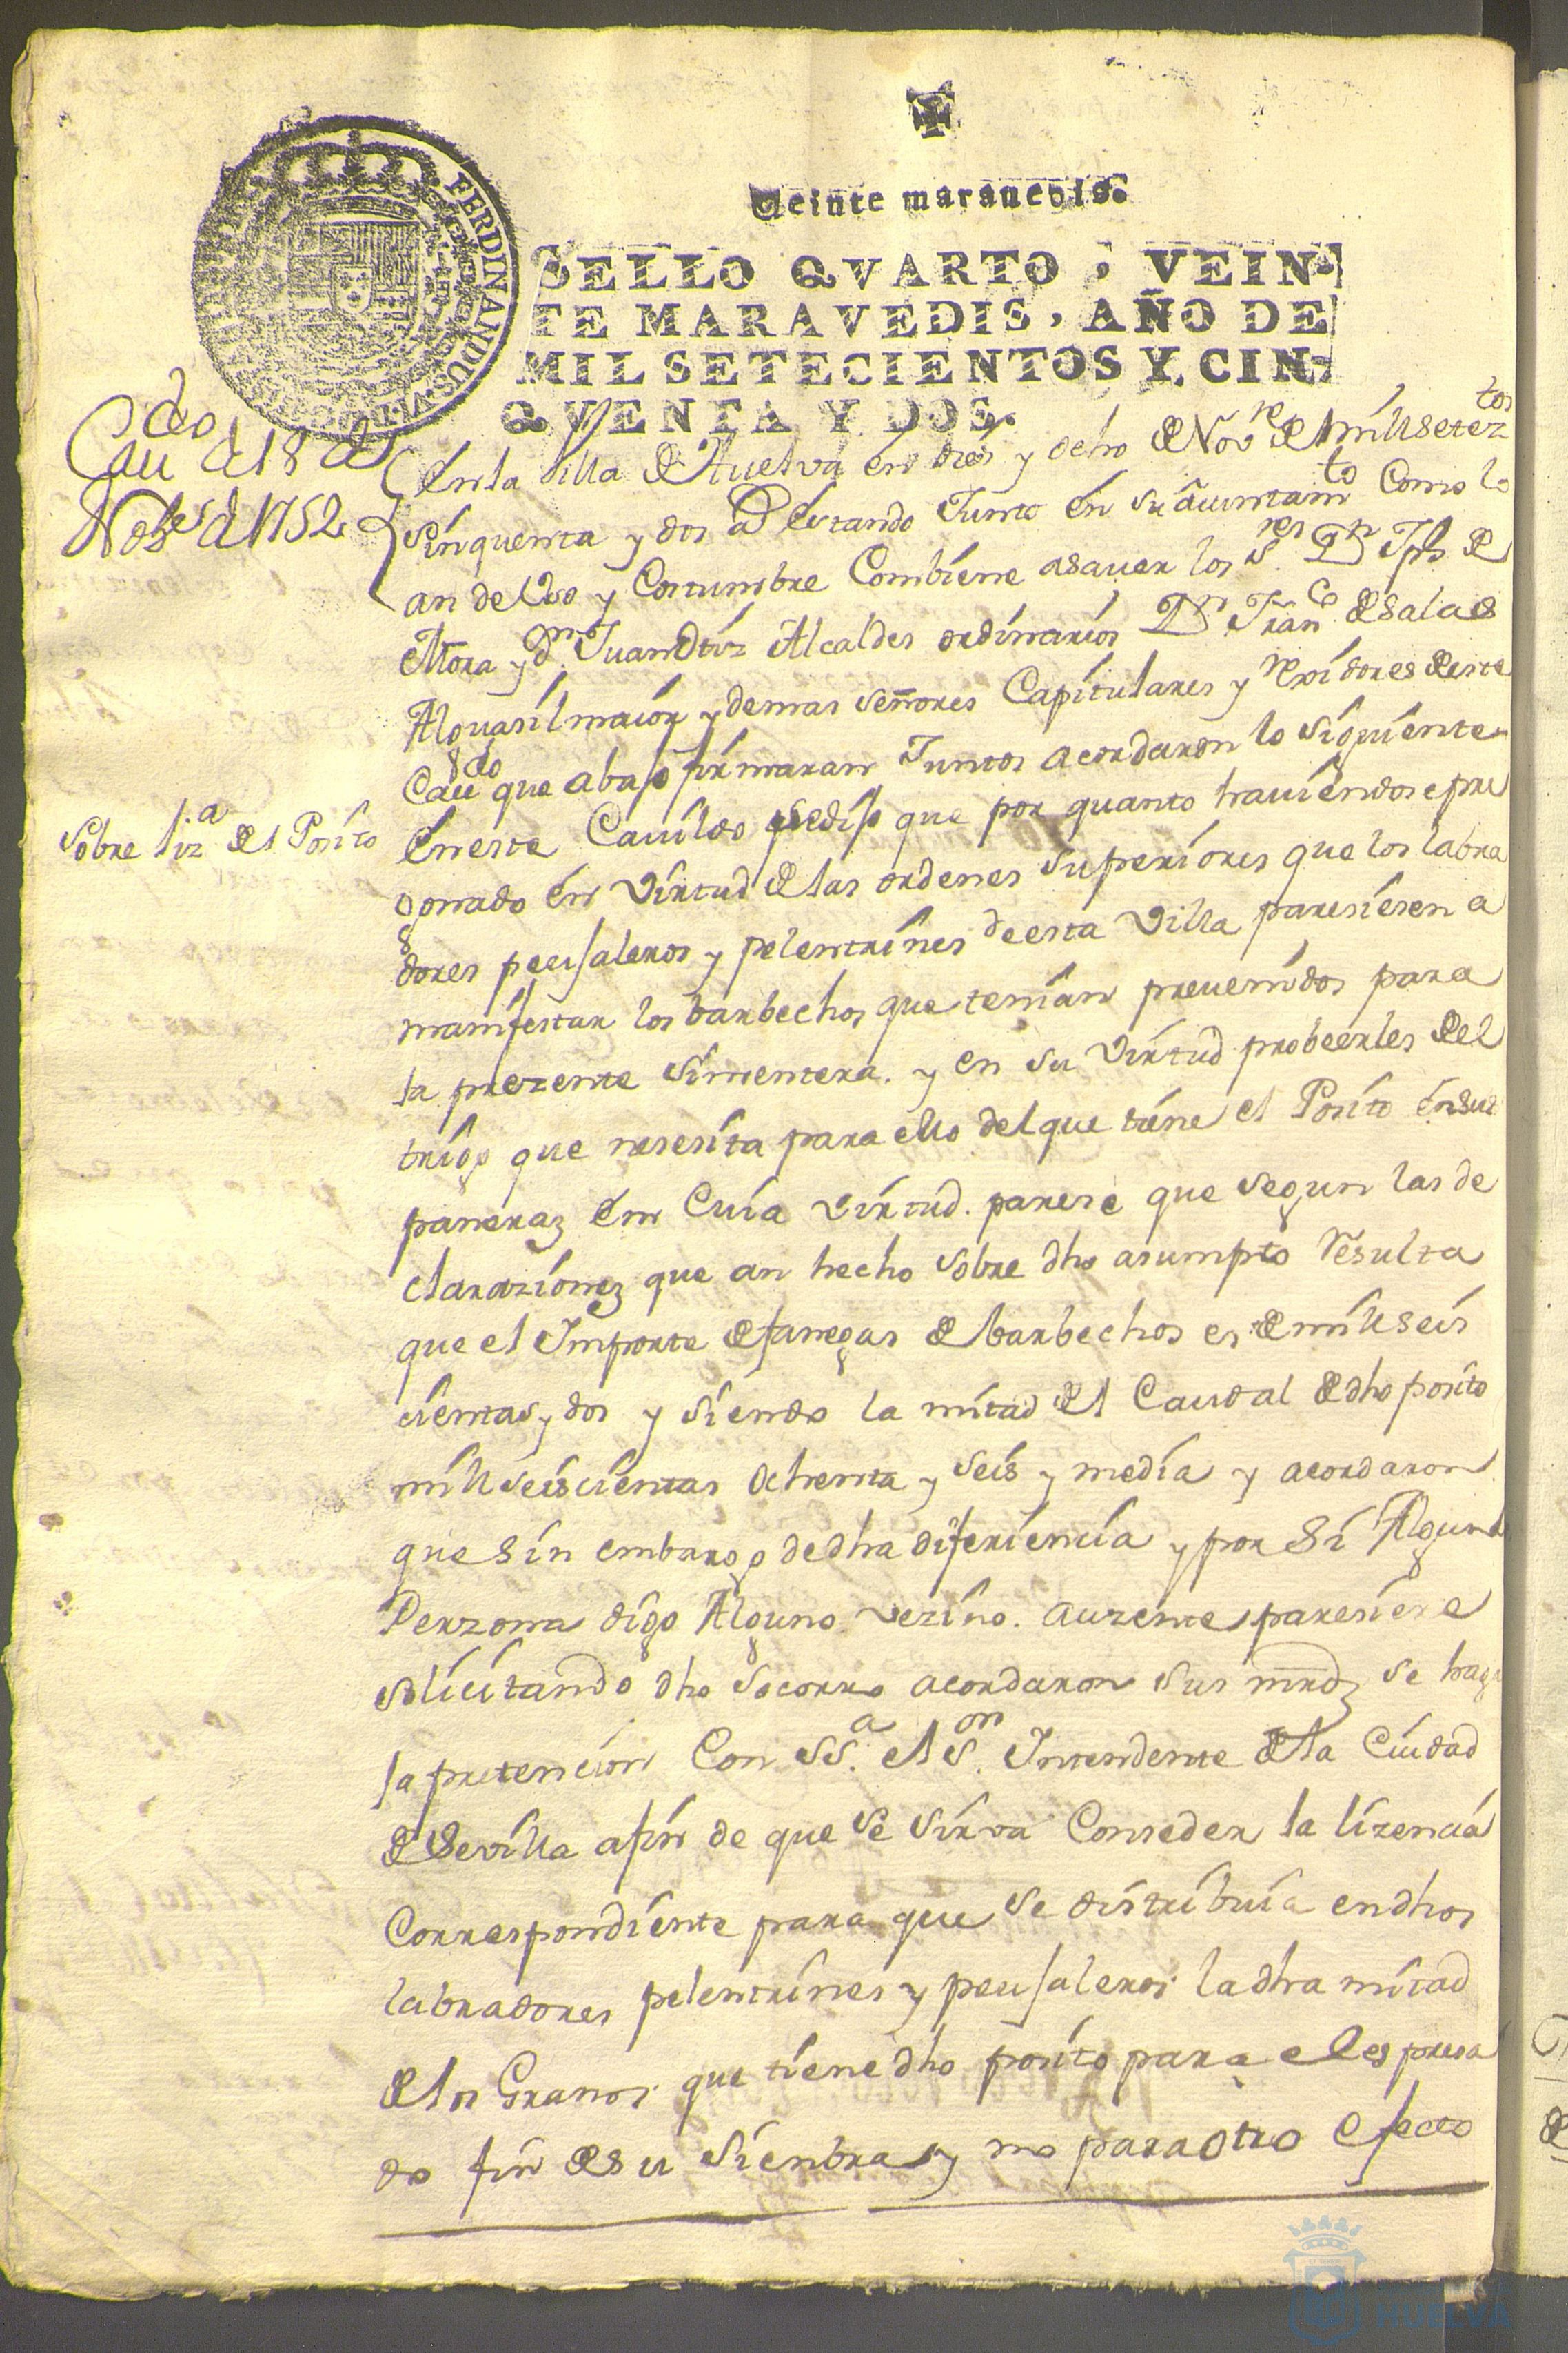 Veinte maravedis.
SELLO QVARTO, VEIN-
TE MARAVEDIS, AÑO DE
MIL SETECIENTOS Y CIN-
QVENTA Y DOS.
FERDINANDUS VI D G
Caudo del 18 de
Nobre de 1752
En la Villa de Huelva en dies y ocho de Novre de mill setez.tos
sinquenta y dos as estando Junto en su aiuntamto Como lo
an de Uso y Costumbre Combiene asauer los Sres Dn Jph de
Mora y Dn Juan Ortiz Alcaldes ordinarios Dn Franco de Salas
Alguasil maior y demas señores Capitulares y Rexidores de este
Caudo que abajo firmaran Juntos acordaron lo siguiente
Sobre liza del Posito
En este Cauildo se dijo que por quanto hauiendose pre
gonado en Virtud de las ordenes superiores que los labra
dores peujaleros y pelentrines de esta Villa paresiesen a
manifestar los barbechos que tenian preuenidos para
la prezente simentera. y en su Virtud probeerles del
trigo que nesesita para ello del que tiene el Posito en sus
paneraz En Cuia virtud. parese que segun las de
clarazionez que an hecho sobre dho asumpto Resulta
que el Importe de fanegas de barbechos es de mill seis
cientas y dos y siendo la mitad del Caudal de dho posito
mill seiscientas ochenta y seis y media y acordaron
que sin embargo de dha diferiencia y por si Alguna
Perzona digo Alguno vezino. auzente paresiere
solicitando dho socorro acordaron sus mrdz se haga
la pretencion Con SSa. el Sor. Intendente de la Ciudad
de Sevilla a fin de que se sirva Conseder la lizencia
Correspondiente para que se distribuia en dhos
labradores pelentrines y peujaleros la dha mitad
de los Granos que tiene dho posito para el espresa
do fin de su siembra y no para otro efecto
HUELVA